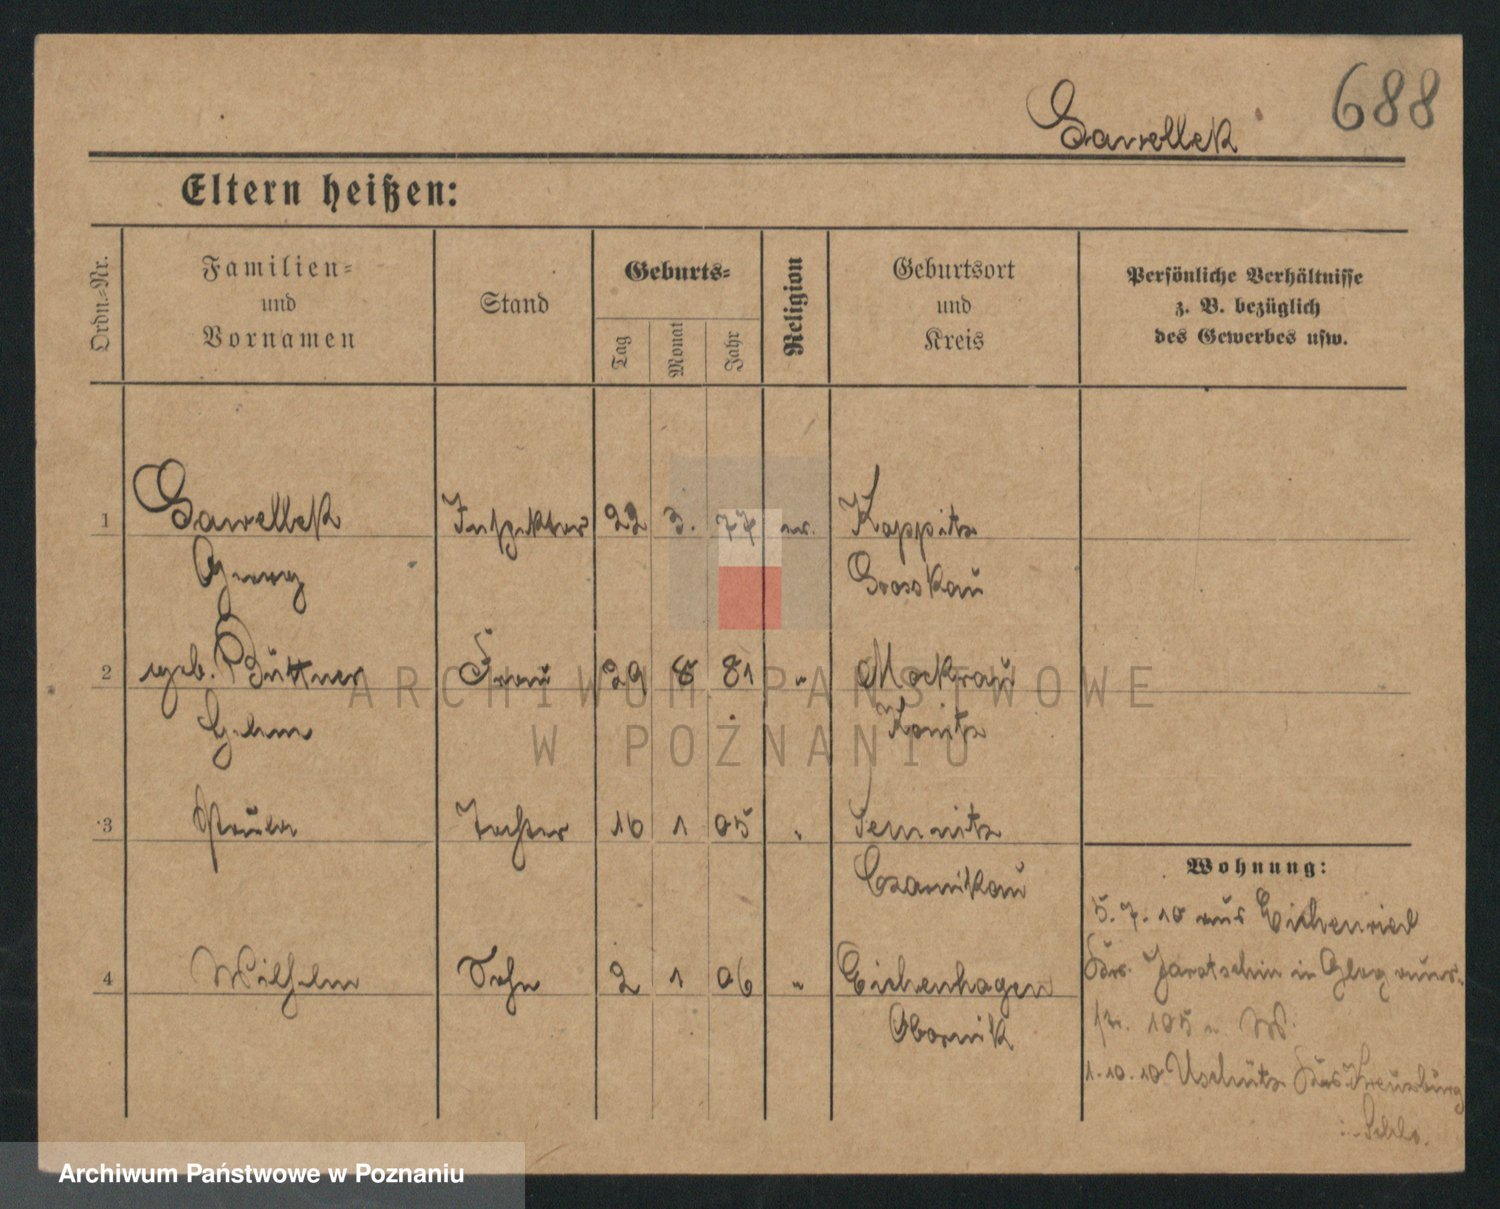 688
Gawellek
Eltern heißen:
Ordn.-Nr.
Familien-
und
Vornamen
Stand
Geburts-
Tag
Monat
Jahr
Religion
Geburtsort
und
Kreis
Persönliche Verhältnisse
z. B. bezüglich
des Gewerbes usw.
1 Gawellek Inspektor 22 3. 77 ev. Koppitz
Georg Grosskau
2 geb. Büttner Frau 29 8 81 " Mockrau
Konitz
3 Paula Tochter 16 1 05 "
Czarnikau
4 Wilhelm Sohn 2 1 06 " Eichenhagen
Obornik
Wohnung:
5. 7. 10 aus Eichenried
Krs. Jarotschin in Glog
str. 105 W.
1.10.10 Uschütz Krs Kreuzburg
Schls.
ARCHIWUM PAŃSTWOWE
W POZNANIU
Archiwum Państwowe w Poznaniu